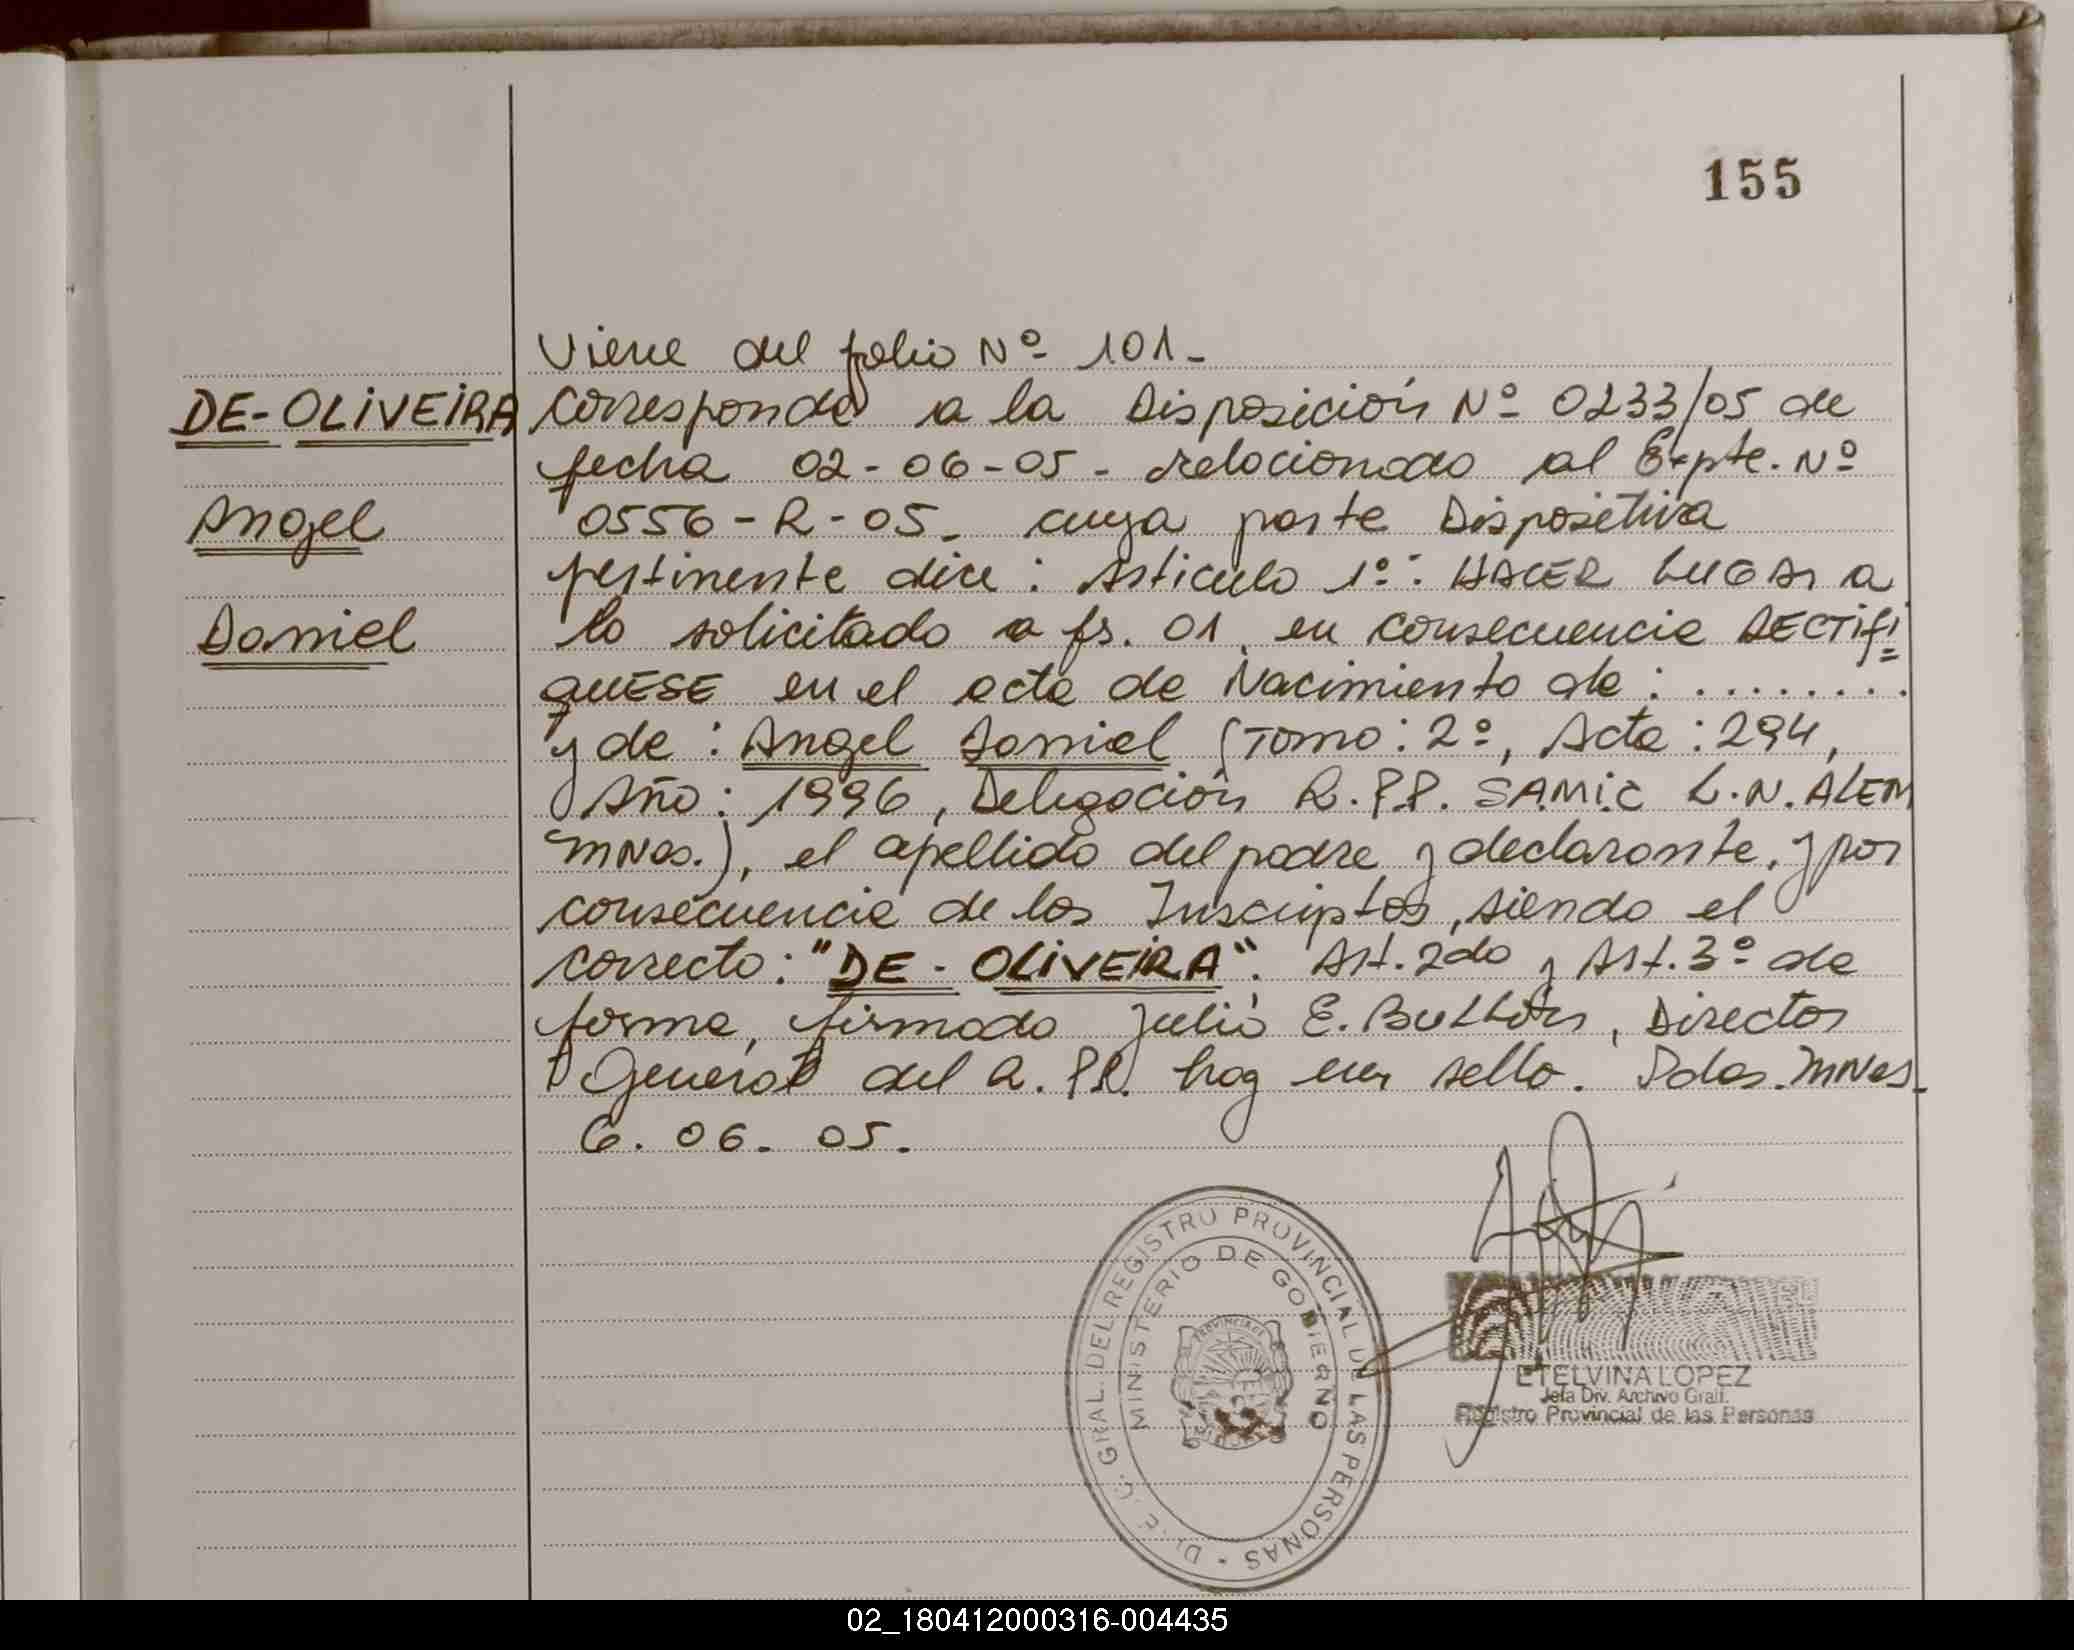 155
Viene del folio Nº 101-
DE-OLIVEIRA Corresponde a la Disposición Nº 0233/05 de
fecha 02-06-05- relacionado al Expte. Nº
Angel 0556-R-05- cuya parte Dispositiva
pertinente dice: Articulo 1º: HACER LUGAR a
Daniel lo solicitado a fs. 01, en consecuencia RECTIFI
QUESE en el acta de Nacimiento de: ........
y de: Angel Daniel (Tomo: 2º, Acta: 294,
Año: 1996, Delegación R.P.P. SAMIC L.N. ALEM
MNes.), el apellido del padre y declarante, y por
consecuencia de los Inscriptos, siendo el
correcto: "DE-OLIVEIRA". Art. 2do y Art. 3º de
forma, firmado Julio E. , Director
General del R.PP. hay un sello. Pdas. MNes-
6. 06. 05.
GRAL. DEL REGISTRO PROVINCIAL DE LAS PERSONAS
MINISTERIO DE GOBIERNO
ETELVINA LOPEZ
Jefa Div. Archivo Gral.
Registro Provincial de las Personas
02_180412000316-004435